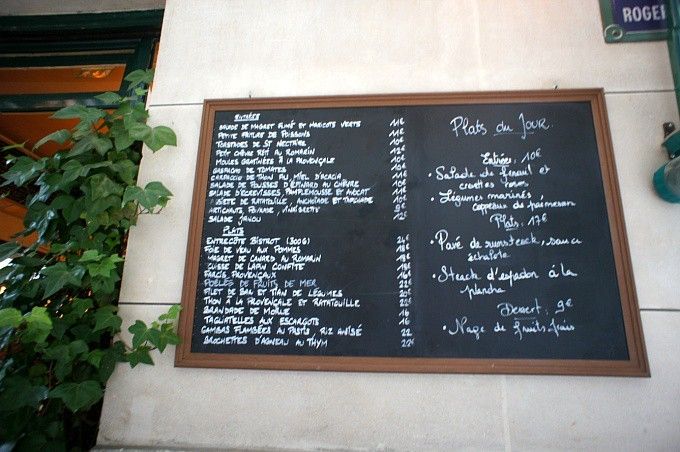 ENTRÉES
SALADE DE MAGRET FUMÉ ET HARICOTS VERTS 11€
PETITE FRITURE DE POISSONS 11€
TOASTADES DE ST NECTAIRE 10€
PETIT CHÈVRE RÔTI AU ROMARIN 12€
MOULES GRATINÉES À LA PROVENÇALE 12€
GASPACHO DE TOMATES
CARPACCIO DE THON AU MIEL D'ACACIA 11€
SALADE DE POUSSES D'ÉPINARD AU CHÈVRE 10€
SALADE D'ECREVISSES, PAMPLEMOUSSE ET AVOCAT
ASSIETTE DE RATATOUILLE, ANCHOÏADE ET TAPENADE 10€
ARTICHAUTS POIVRADE, VINAIGRETTE
SALADE 12€
PLATS
ENTRECÔTE BISTROT (300G) 24€
FOIE DE VEAU AUX POMMES 18€
MAGRET DE CANARD AU ROMARIN 18€
CUISSE DE LAPIN CONFITE 18€
FARCIS PROVENÇAUX 16€
POÊLÉE DE FRUITS DE MER 22€
FILET DE BAR ET TIAN DE LÉGUMES 20€
THON À LA PROVENÇALE ET RATATOUILLE 22€
BRANDADE DE MORUE 16
TAGLIATELLES AUX ESCARGOTS 16
GAMBAS FLAMBÉES AU PASTIS RIZ ANISÉ 22
BROCHETTES D'AGNEAU AU THYM 22€
Plats du Jour
Entrées: 10€
• Salade de fenouil et
crottes
• Légumes marinés
copeaux de parmesan
Plats: 17€
• Pavé de rumsteack, sauce
échalote
• Steack d'espadon à la
plancha
Dessert: 9€
• Nage de fruits frais
ROGER